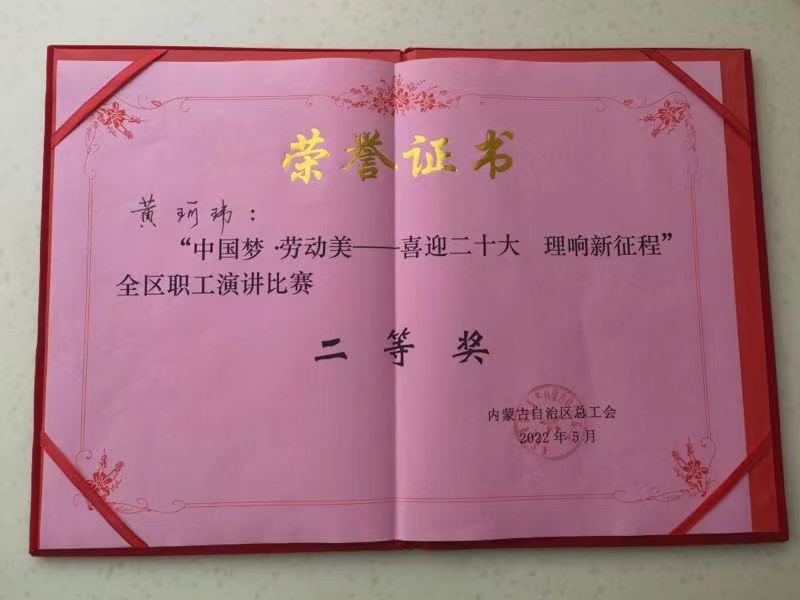 荣誉证书
黄珂玮：
“中国梦·劳动美——喜迎二十大　理响新征程”
全区职工演讲比赛
二等奖
内蒙古自治区总工会
2022年5月